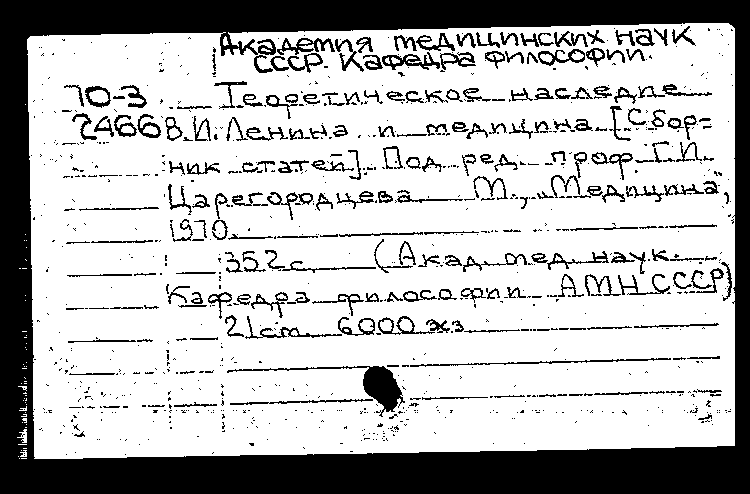 Академия медицинских наук
СССР. Кафедра философии.
70-3 Теоретическое наследие
2466 В.И. Ленина и медицина [Сбор-
ник статей]. Под ред. проф. Г.И.
Царегородцева М., „Медицина",
1970.
352 с. (Акад. мед. наук.
Кафедра философии АМН СССР)
21 см. 6000 экз